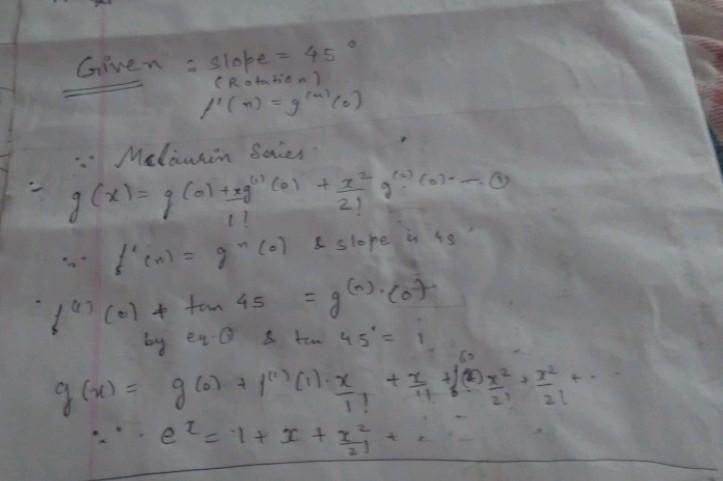 Given : slope = 45°
(Rotation)
f'(n) = g^(n)(0)
∵ Maclaurin Series.
g(x) = g(0) + x/1! g^(1)(0) + x²/2! g^(2)(0) - - - ①
∵ f'(n) = g^n(0) & slope is 45°
f^(1)(0) + tan 45 = g^(n).(0)
by eq. ① & tan 45° = 1
g(x) = g(0) + f^(1)(1). x/1! + x/1! + x²/2! + x²/2! + . . .
∵ e^x = 1 + x + x²/2! + . . .